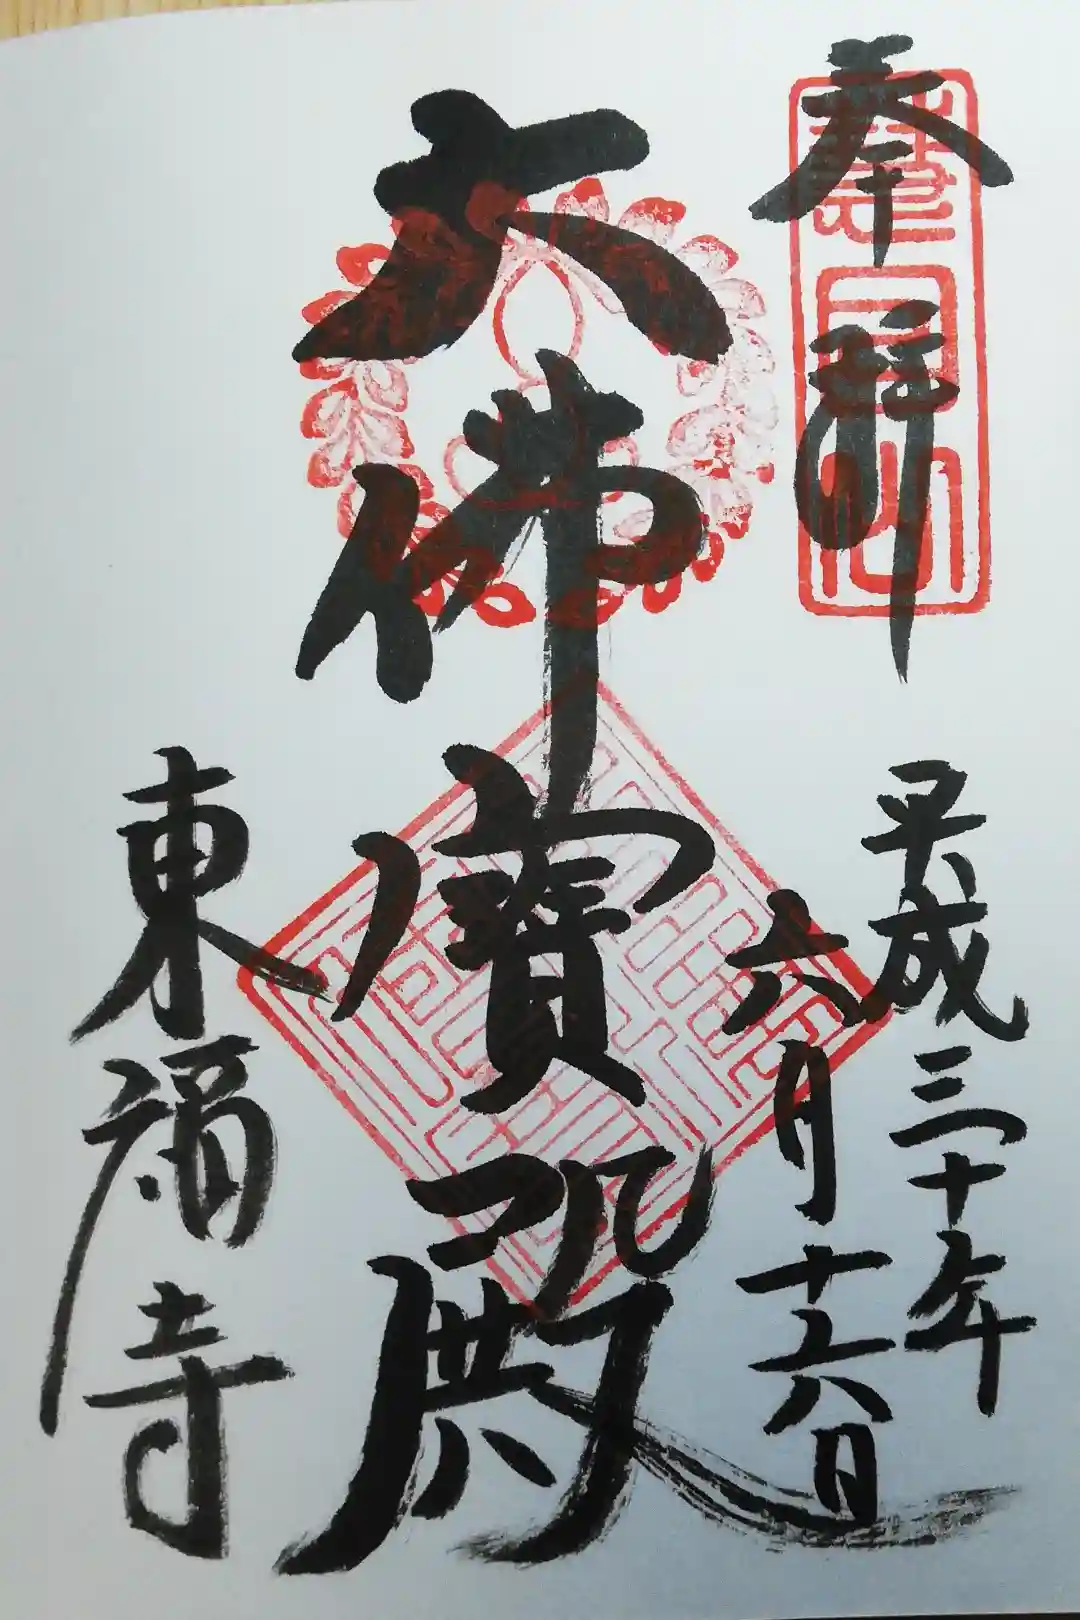 奉拝
平成三十年
六月十六日
大佛寶殿
東福寺
慧日山